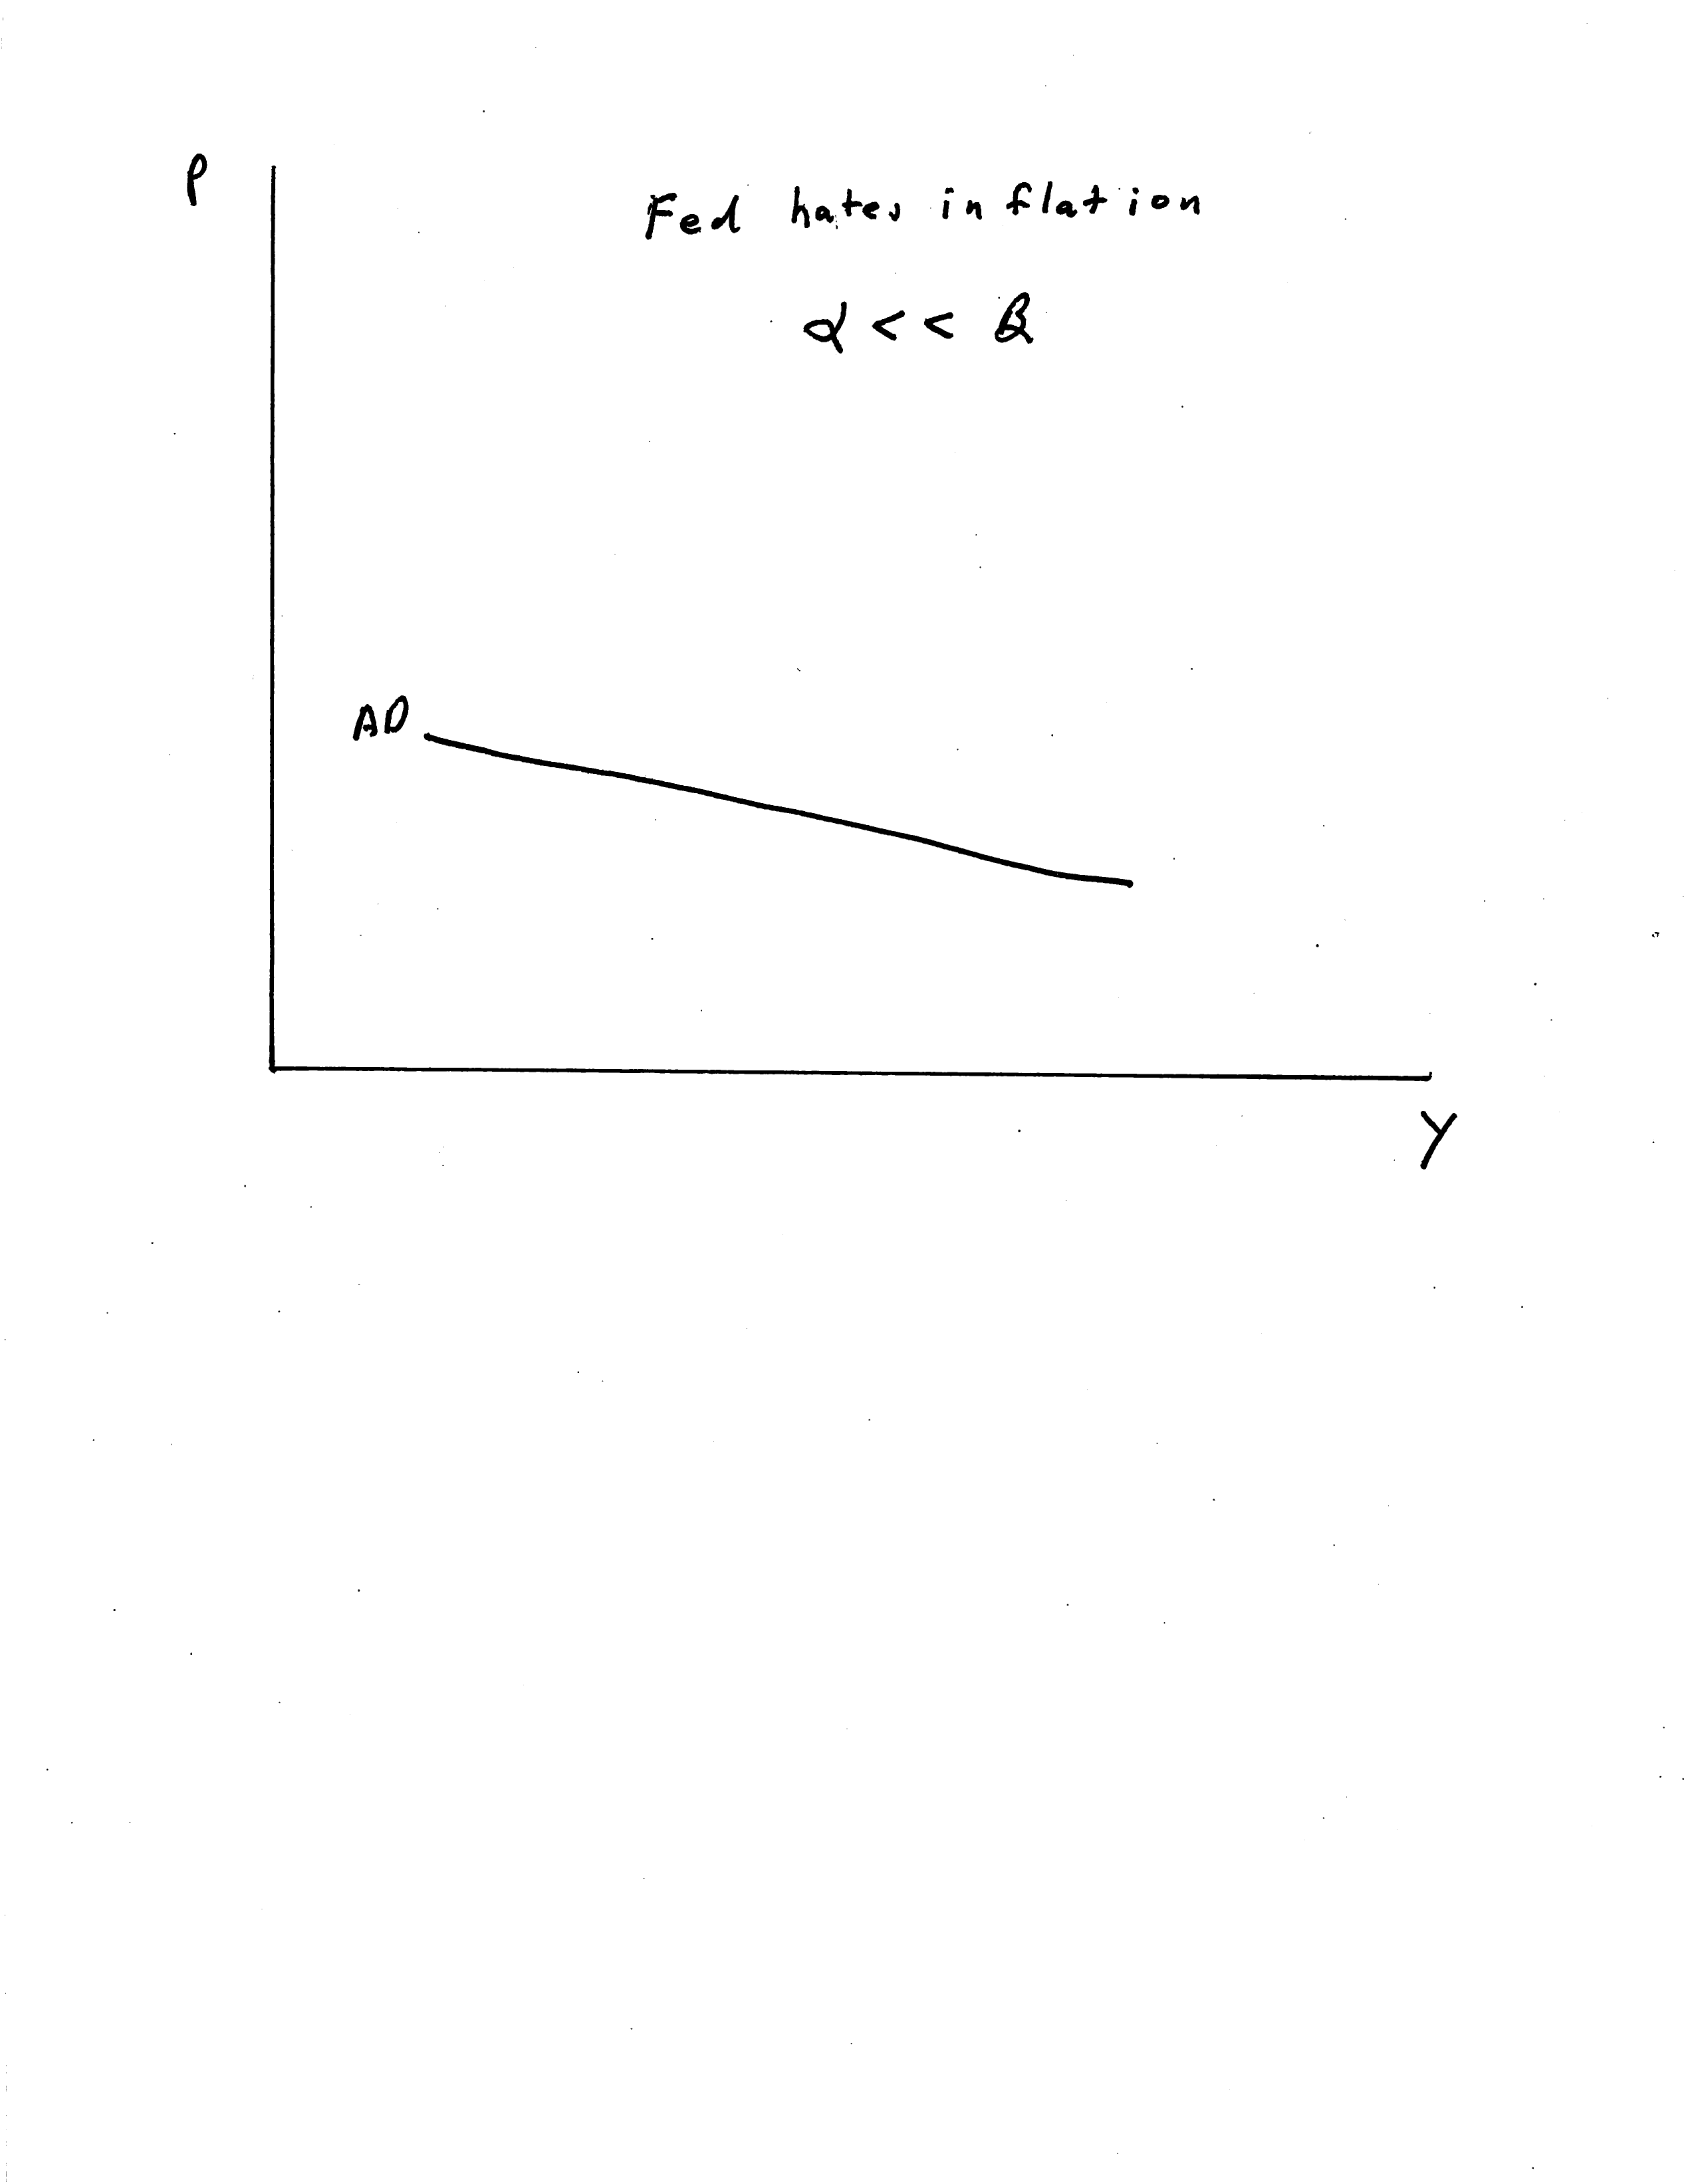 P
Fed hates inflation
α << β
AD
Y